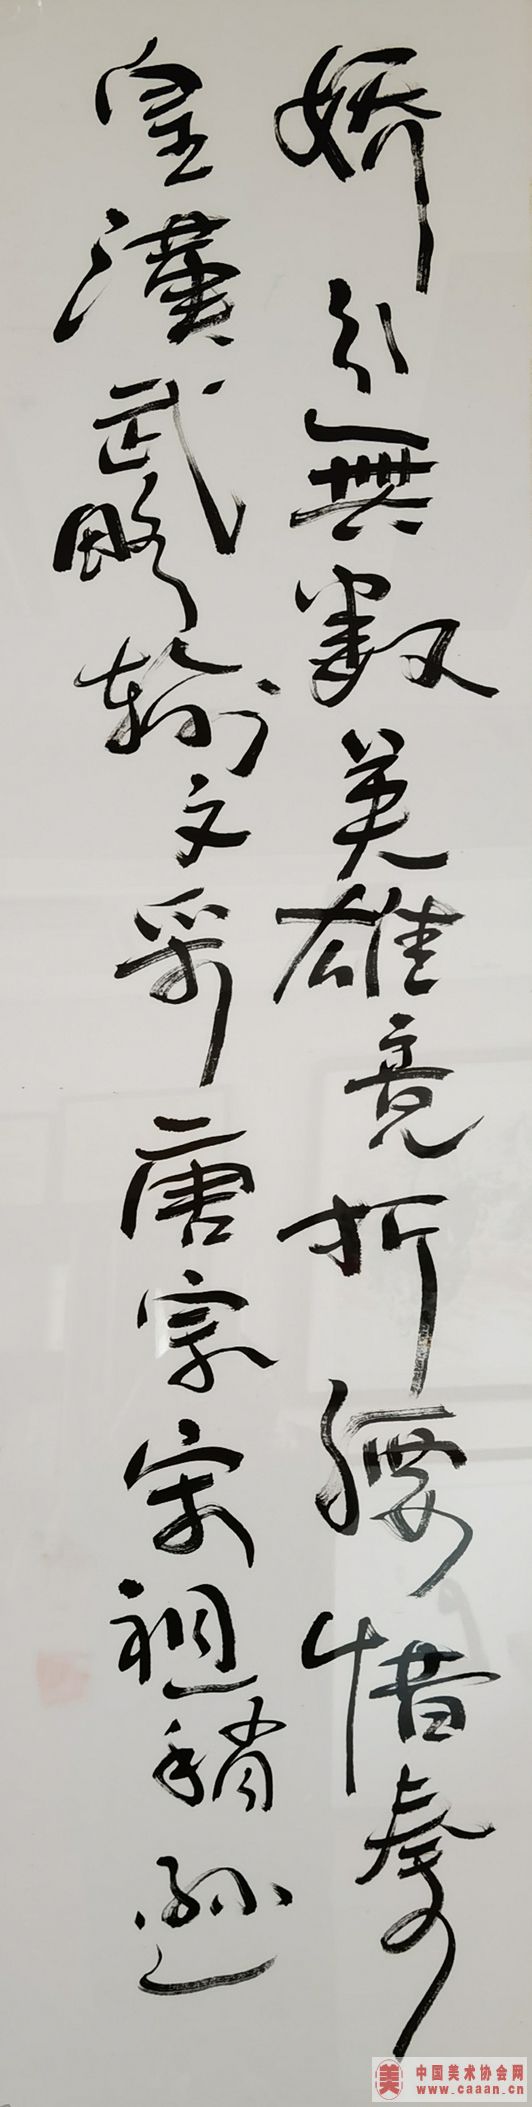 娇引無数英雄竞折腰惜秦
皇漢武略輸文采唐宗宋祖稍遜
美
中国美术协会网
www.caaan.cn